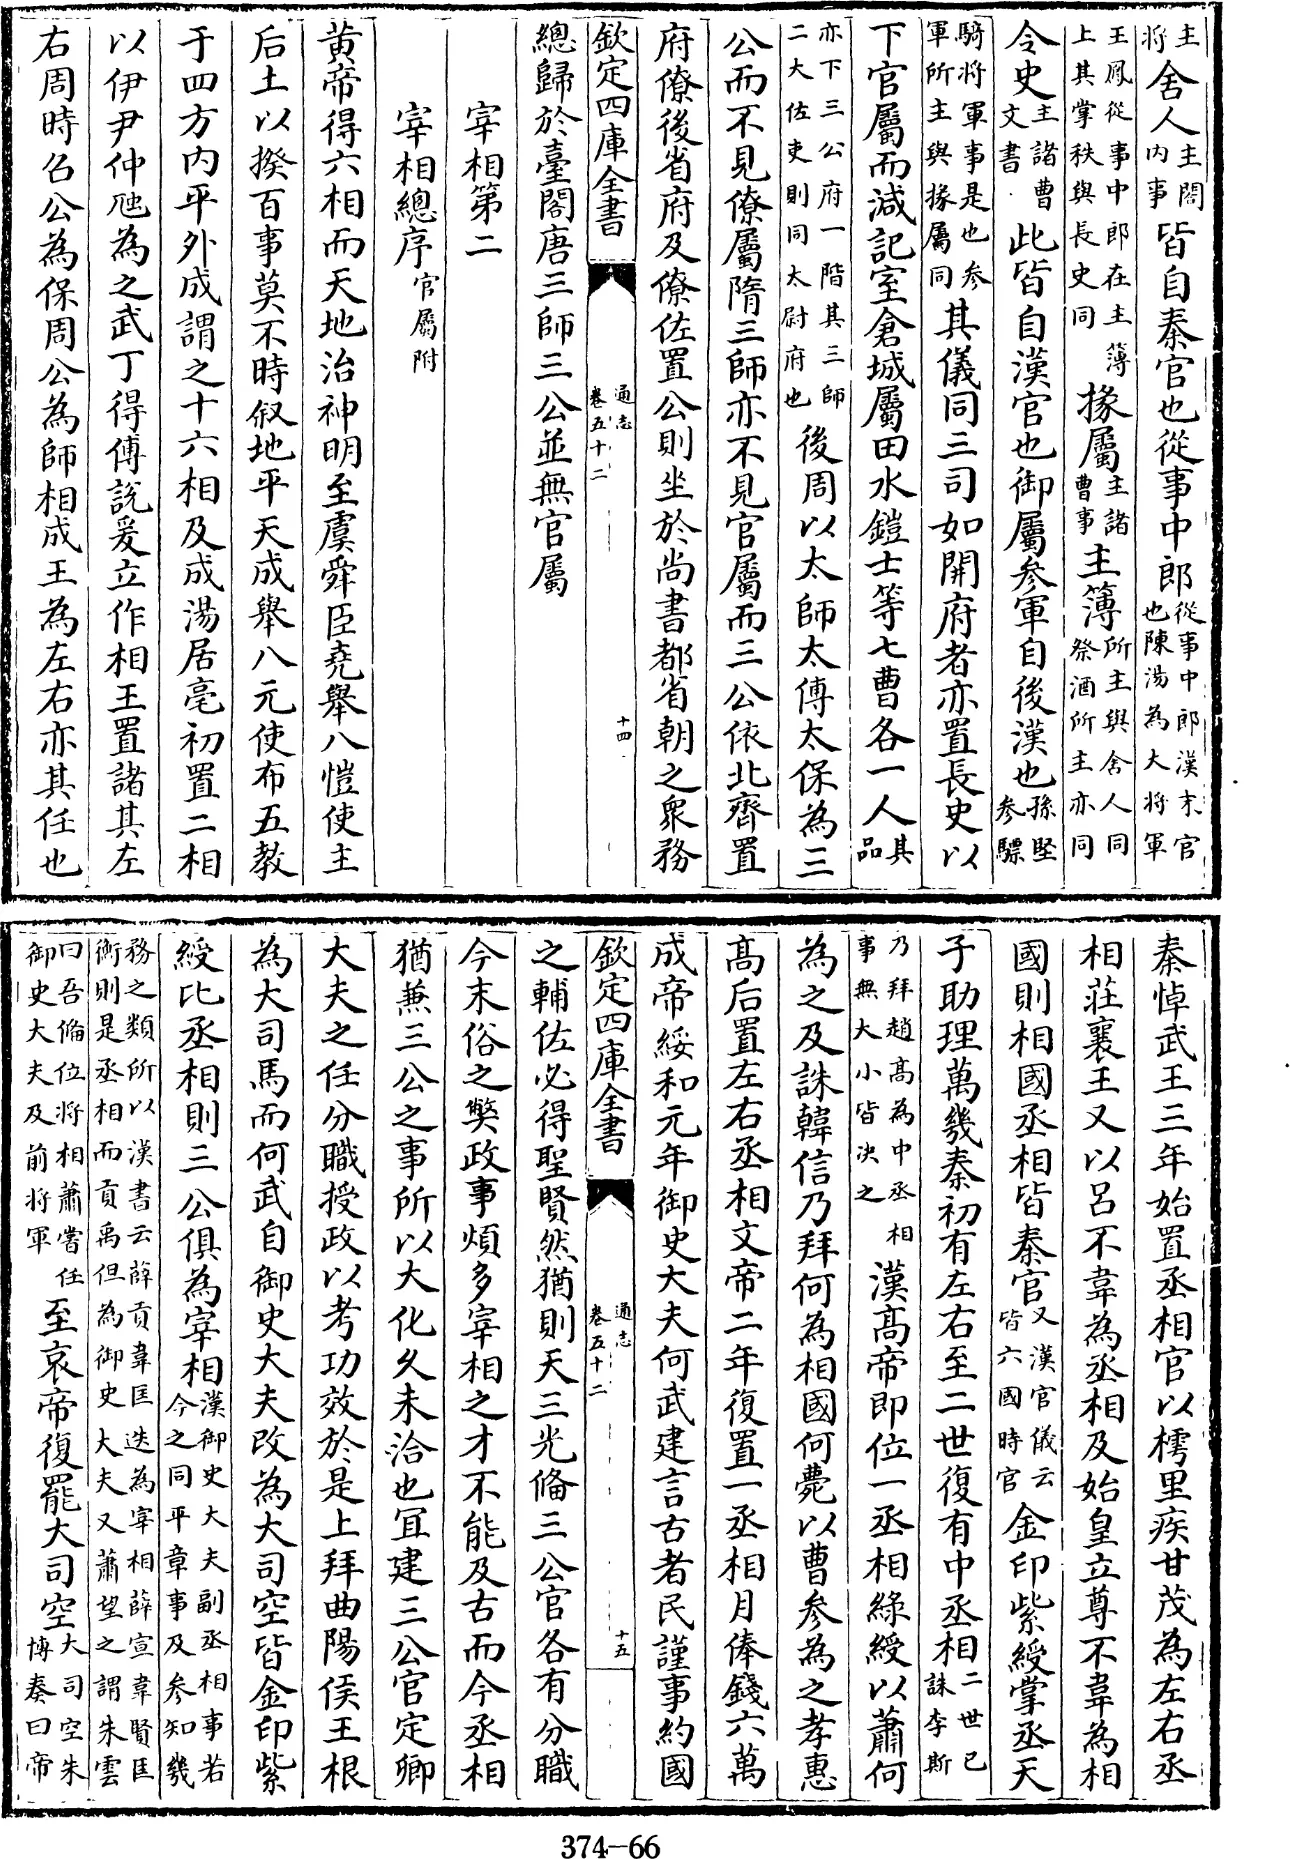 主將舍人主閤内事皆自秦官也從事中郎從事中郎漢末官也陳湯為大將軍
王鳳從事中郎在主簿上其掌秩與長史同掾屬主諸曹事主簿所主與舍人同祭酒所主亦同
令史主諸曹文書此皆自漢官也御屬參軍自後漢也孫堅參驃
騎將軍事是也參軍所主與掾屬同其儀同三司如開府者亦置長史以
下官屬而減記室倉城屬田水鎧士等七曹各一人其品
亦下三公府一階其三師二大佐吏則同太尉府也後周以太師太傅太保為三
公而不見僚屬隋三師亦不見官屬而三公依北齊置
府僚後省府及僚佐置公則坐於尚書都省朝之衆務
欽定四庫全書
通志
卷五十二
十四
總歸於臺閣唐三師三公並無官屬
宰相第二
宰相總序官屬附
黄帝得六相而天地治神明至虞舜臣堯舉八愷使主
后土以揆百事莫不時叙地平天成舉八元使布五教
于四方内平外成謂之十六相及成湯居亳初置二相
以伊尹仲虺為之武丁得傅説爰立作相王置諸其左
右周時召公為保周公為師相成王為左右亦其任也
秦悼武王三年始置丞相官以樗里疾甘茂為左右丞
相莊襄王又以吕不韋為丞相及始皇立尊不韋為相
國則相國丞相皆秦官又漢官儀云皆六國時官金印紫綬掌丞天
子助理萬幾秦初有左右至二世復有中丞相二世已誅李斯
乃拜趙高為中丞相事無大小皆决之漢高帝即位一丞相緑綬以蕭何
為之及誅韓信乃拜何為相國何薨以曹參為之孝惠
高后置左右丞相文帝二年復置一丞相月俸錢六萬
成帝綏和元年御史大夫何武建言古者民謹事約國
欽定四庫全書
通志
卷五十二
十五
之輔佐必得聖賢然猶則天三光備三公官各有分職
今末俗之弊政事煩多宰相之才不能及古而今丞相
猶兼三公之事所以大化久未洽也宜建三公官定卿
大夫之任分職授政以考功效於是上拜曲陽侯王根
為大司馬而何武自御史大夫改為大司空皆金印紫
綬比丞相則三公俱為宰相漢御史大夫副丞相事若今之同平章事及參知幾
務之類所以漢書云薛貢韋匡迭為宰相薛宣韋賢匡衡則是丞相而貢禹但為御史大夫又蕭望之謂朱雲
曰吾備位將相蕭嘗任御史大夫及前將軍至哀帝復罷大司空大司空朱博奏曰帝
374-66